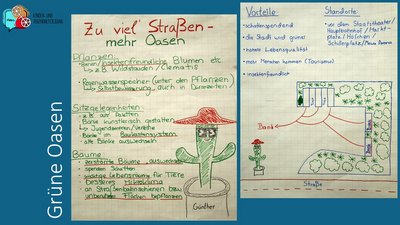 KINDER- UND
JUGENDBETEILIGUNG
Grüne Oasen
Zu viel Straßen -
mehr Oasen
Pflanzen:
Bienen/insektenfreundliche Blumen etc.
↳ z.B. Wildstauden / Clematis
Regenwasserspeicher (unter den Pflanzen)
↳ Selbstbewässerung, auch in Dürrezeiten
Sitzgelegenheiten:
z.B. aus Paletten
Bänke künstlerisch gestaltet
↳ Jugendzentren/Vereine
Bänke im Baukastensystem
alte Bänke auswechseln
Bäume
zerstörte Bäume auswechseln
spenden Schatten
wichtige Lebensräume für Tiere
besseres Mikroklima
an Straßenbahnschienen bzw.
unbenutzte Flächen bepflanzen
Günther
Vorteile:
schattenspendend
die Stadt wird grüner
höhere Lebensqualität
mehr Menschen kommen (Tourismus)
insektenfreundlich
Standorte:
vor dem Staatstheater/
Hauptbahnhof / Markt-
platz / Höfchen/
Schillerplatz /
Bank
Straße